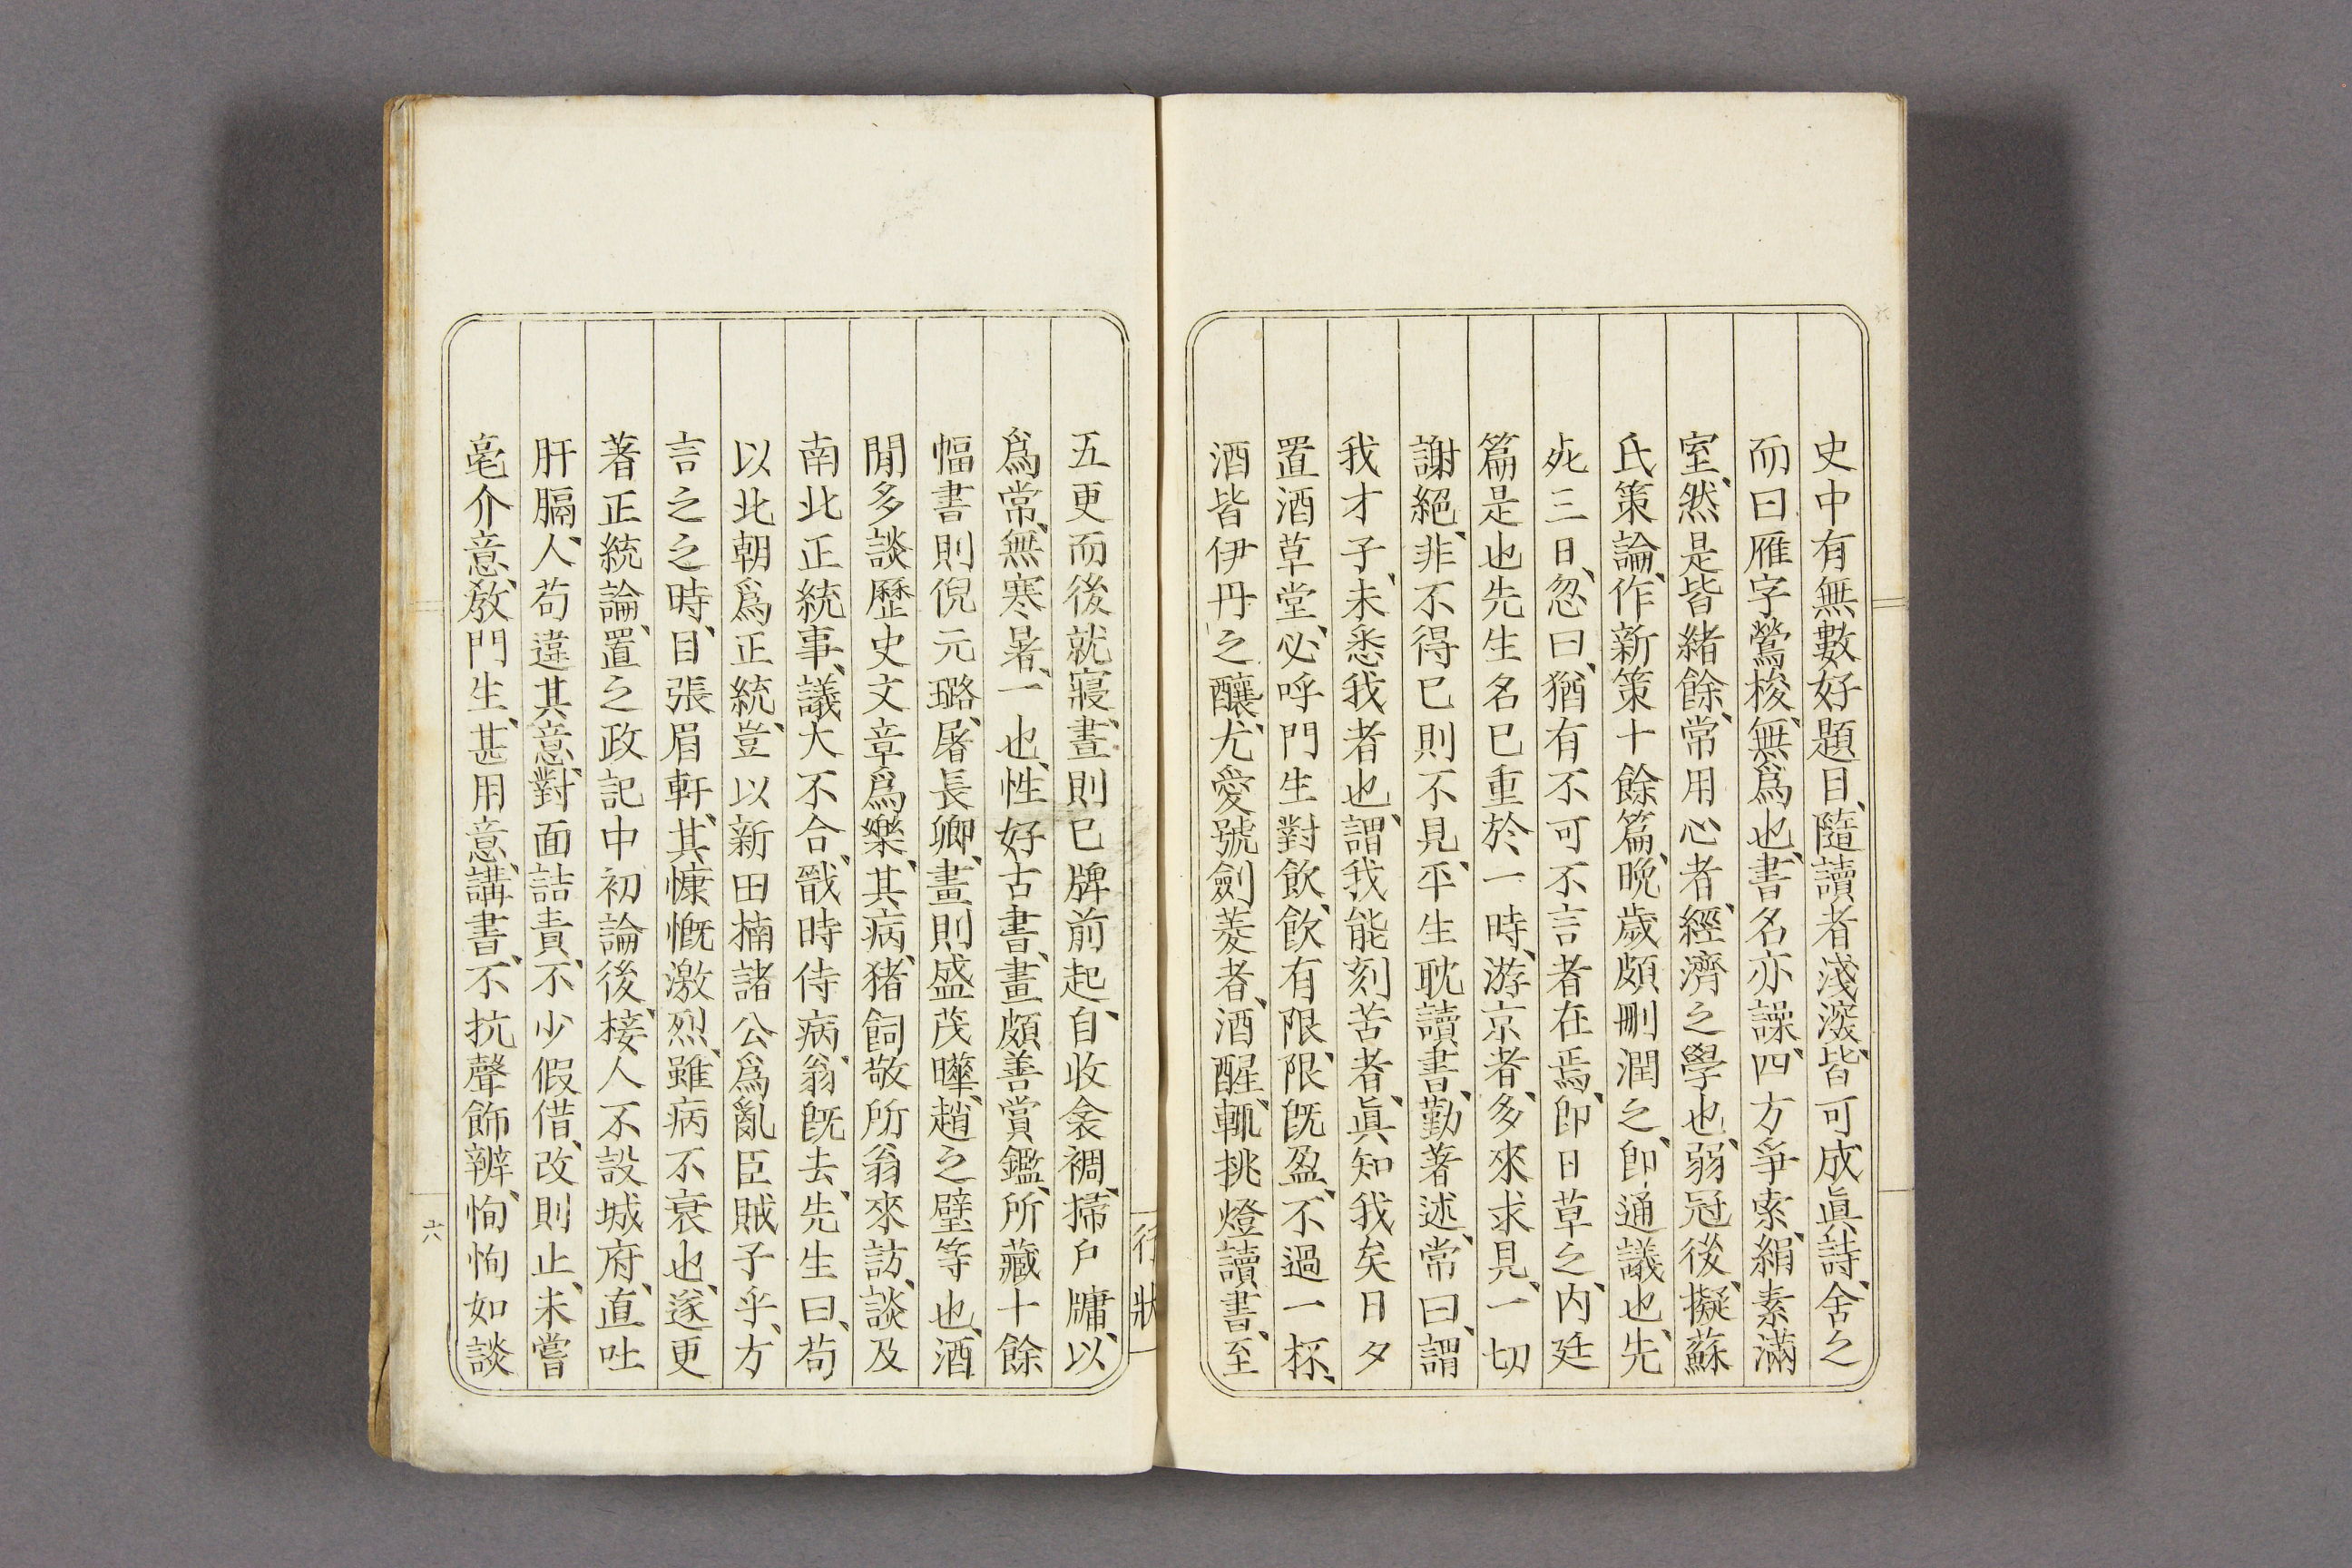 史中有無數好題目、隨讀者淺深、皆可成眞詩、舍之
而曰雁字鶯梭、無爲也、書名亦譟、四方爭索、絹素滿
室、然是皆緒餘、常用心者、經濟之學也、弱冠後、擬蘇
氏策論、作新策十餘篇、晩歲頗刪潤之、卽通議也、先
死三日、忽曰、猶有不可不言者在焉、卽日草之、内廷
篇是也先生名已重於一時、游京者、多來求見、一切
謝絕、非不得已則不見、平生耽讀書、勤著述、常曰、謂
我才子、未悉我者也、謂我能刻苦者、眞知我矣日夕
置酒草堂、必呼門生對飲、飲有限、限既盈、不過一杯、
酒皆伊丹之釀、尤愛號劍菱者、酒醒、輒挑燈讀書、至
五更而後就寢、晝則巳牌前起、自收衾裯、掃戶牖、以
爲常、無寒暑、一也、性好古書、畫頗善賞鑑、所藏十餘
幅書則倪元璐、屠長卿、畫則盛茂曄、趙之璧等也、酒
閒多談歷史文章爲樂、其病、猪飼敬所翁來訪、談及
南北正統事、議大不合、戩時侍病、翁既去、先生曰、苟
以北朝爲正統、豈以新田楠諸公爲亂臣賊子乎、方
言之之時、目張眉軒、其慷慨激烈、雖病不衰也、遂更
著正統論、置之政記中初論後、接人不設城府、直吐
肝膈、人苟違其意、對面詰責、不少假借、改則止、未嘗
毫介意、敎門生、甚用意、講書、不抗聲飾辨、恂恂如談
行狀
六